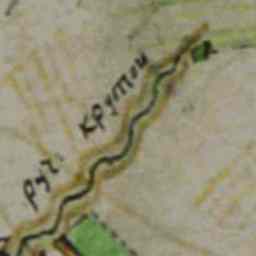 руч. крутой